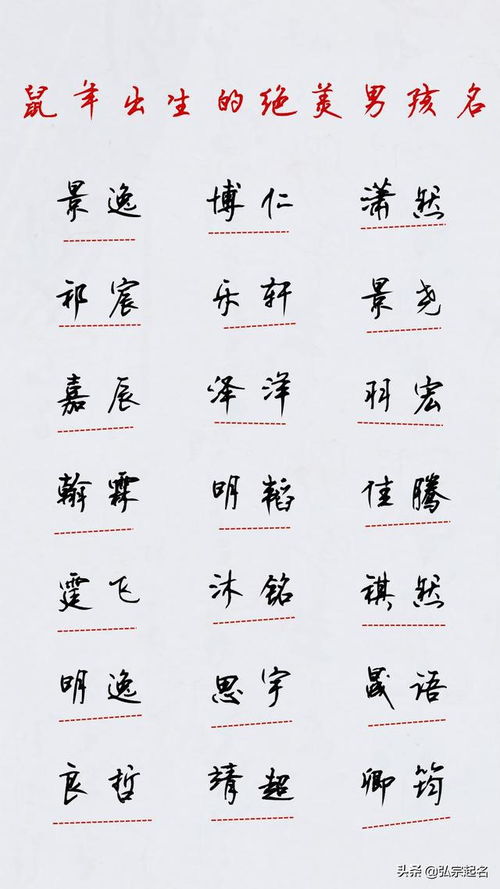 鼠年出生的绝美男孩名
景逸 博仁 潇然
祁宸 乐轩 景尧
嘉辰 泽洋 羽宏
翰霖 明韬 佳腾
霆飞 沐铭 祺然
明逸 思宇 晟语
良哲 靖超 卿筠
头条 @弘宗起名